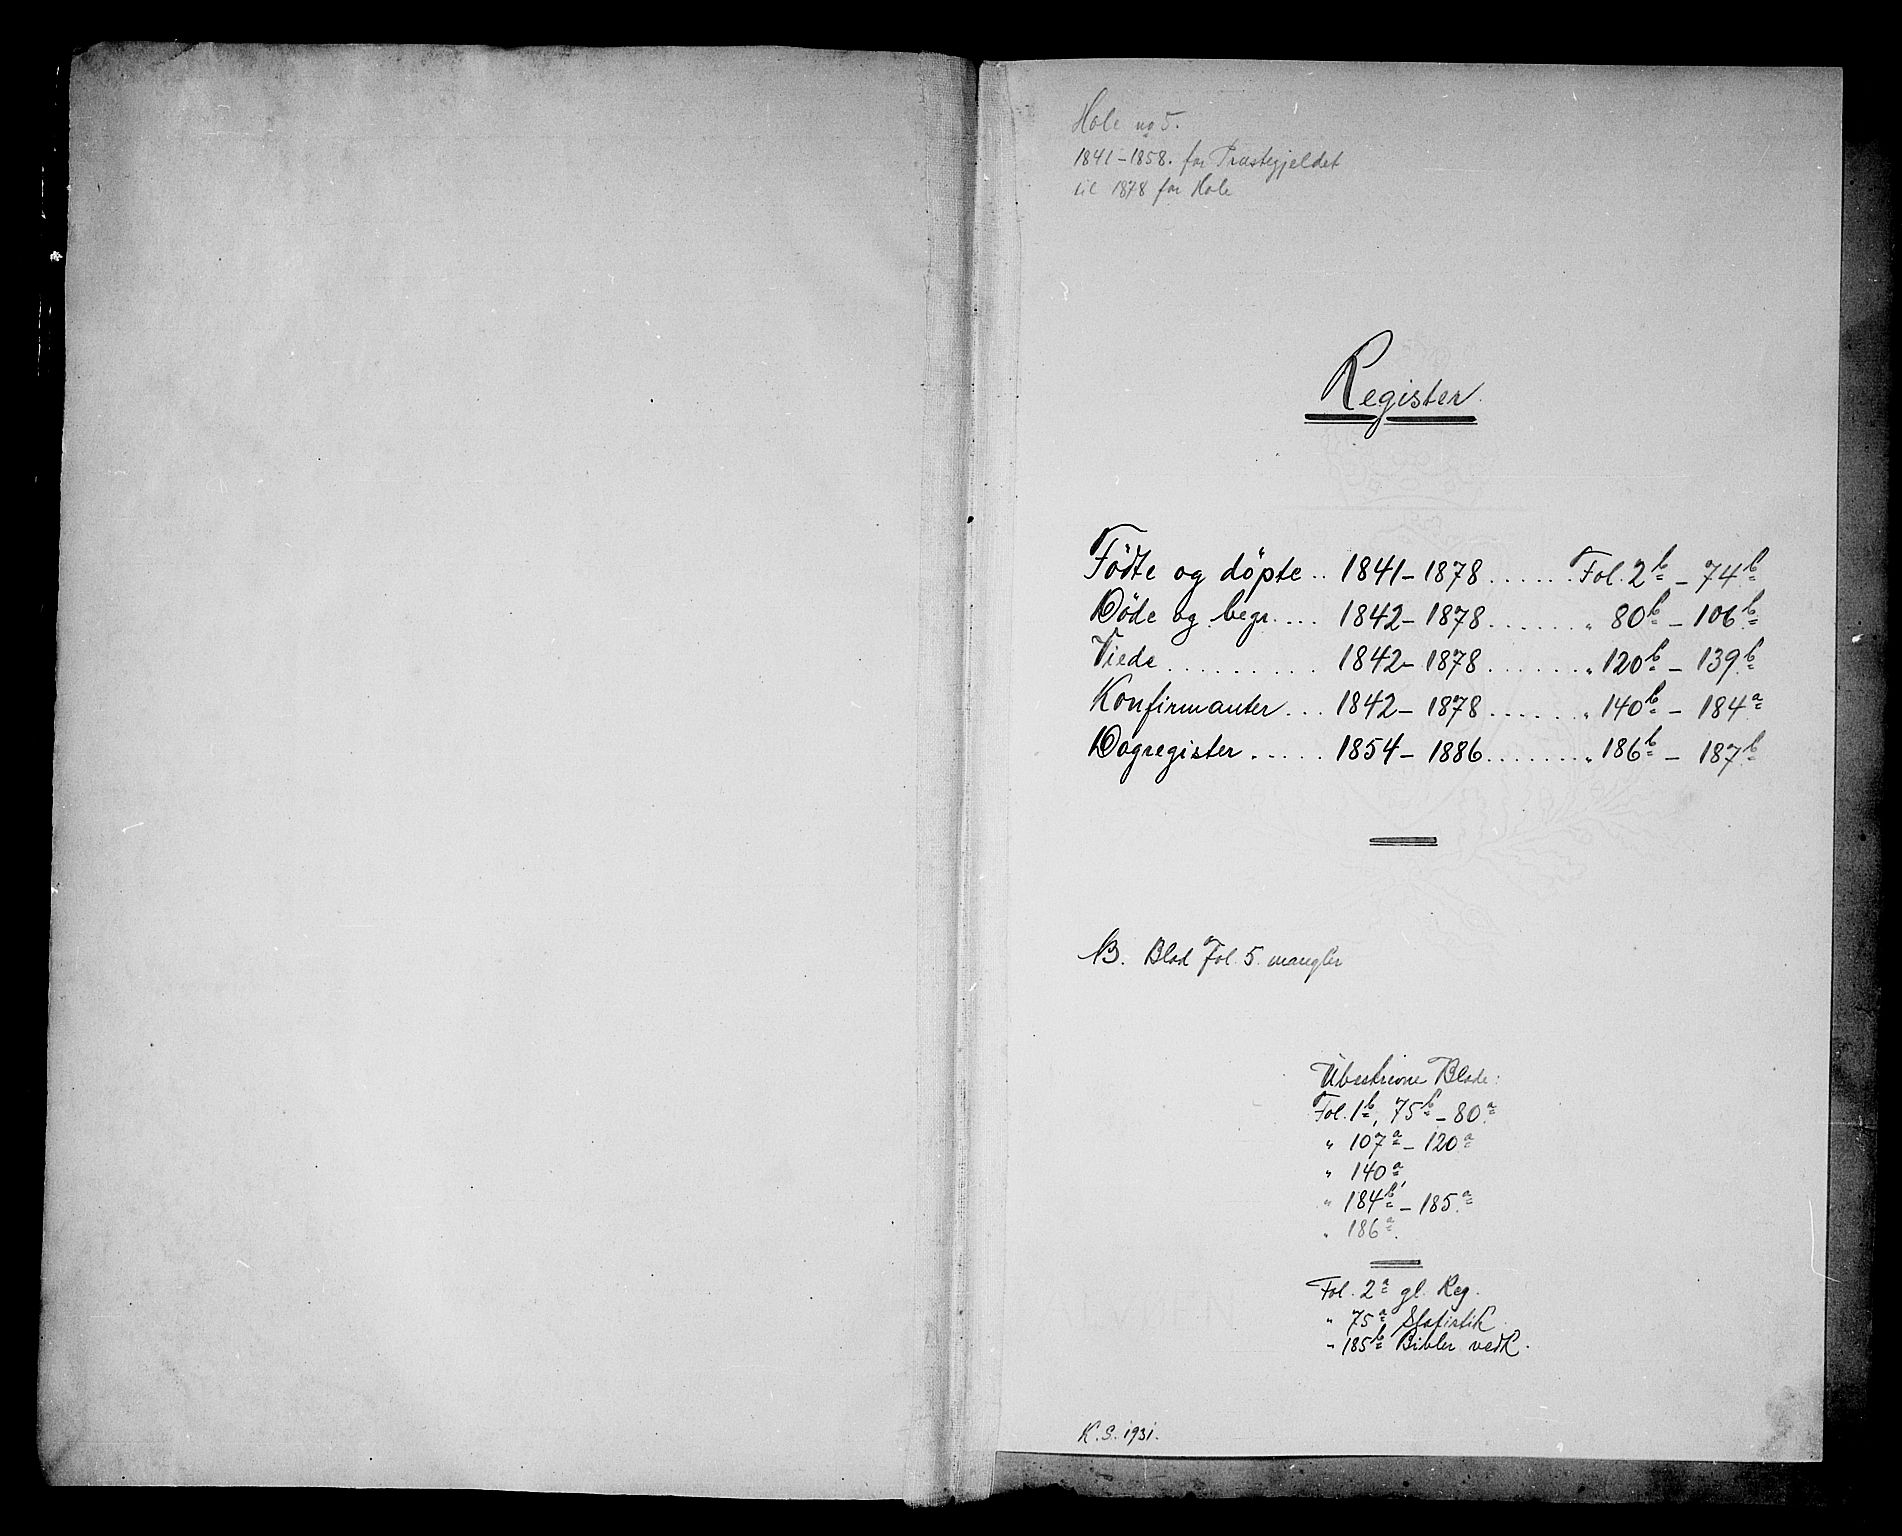 Hole no 5.
1841-1858. for Præstegjeldet
til 1878 for Hole
Register
Födte og döpte .. 1841-1878 ....... Fol. 2b - 74b
Döde og begr. ... 1842-1878 ....... " 80b - 106b
Viede .......... 1842-1878 ....... " 120b - 139b
Konfirmanter ... 1842-1878 ...... " 140b - 184a
Dagregister ..... 1854-1886 ........ " 186b - 187b
NB. Blad Fol. 5 mangler
Ubeskrevne Blade:
Fol. 1b, 75b - 80a
" 107a - 120a
" 140a
" 184b - 185a
" 186a.
Fol. 2a gl. Reg.
" 75a Statistik
" 185b Bibler vedk.
K.S. 1931.